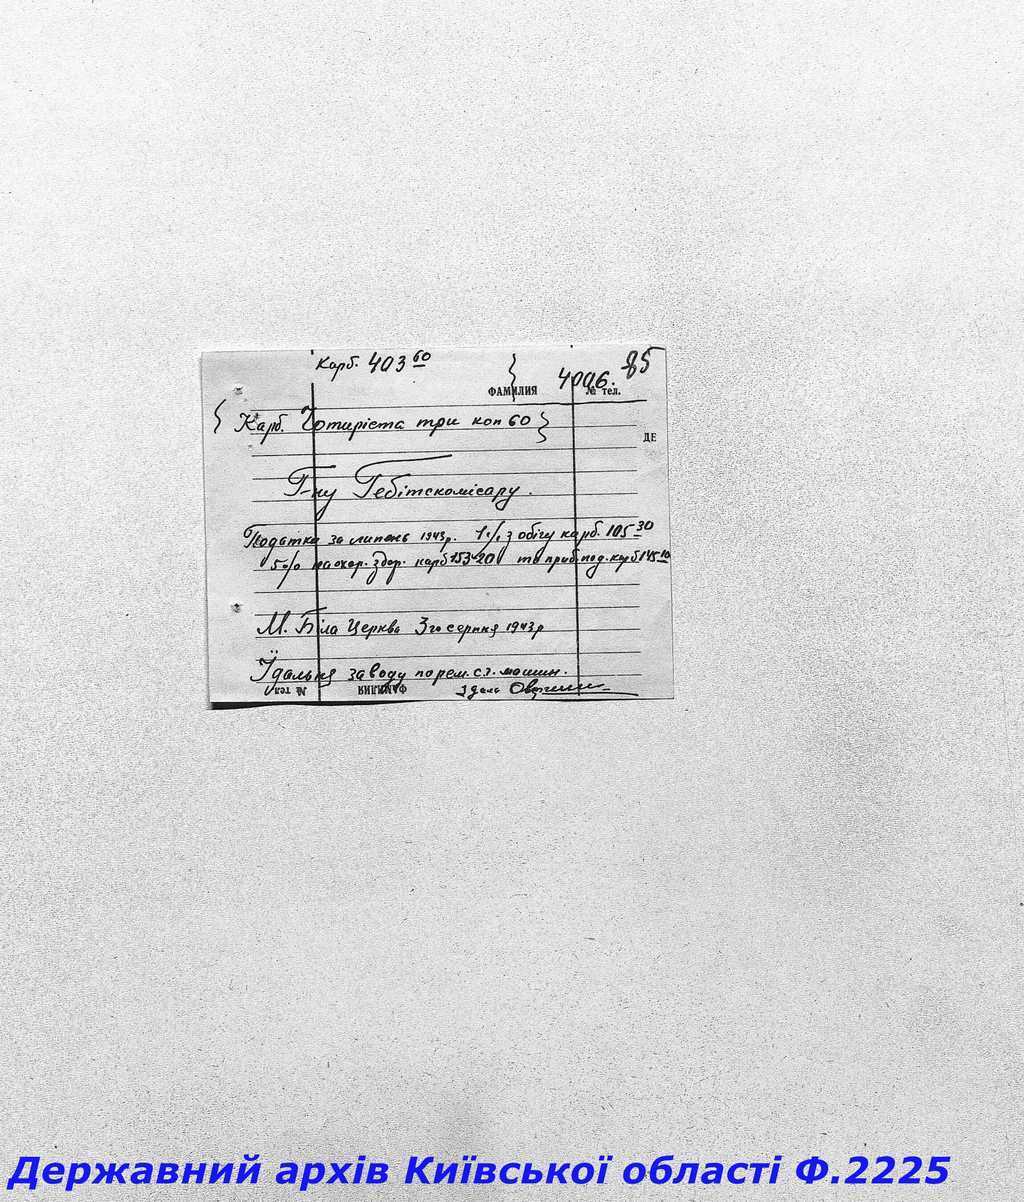 85
Карб. 403 60
4006.
ФАМИЛИЯ № тел.
Карб. Чотиріста три коп 60
ДЕ
Г-ну Гебітскомісару.
Податка за липень 1943р. 1% з обігу карб. 105 30
5% на охор. здор. карб 153-20 та приб. под. карб 145 10
М. Біла Церква 3го серпня 1943р
Їдальня заводу по рем. с.г. машин.
№ тел ФАМИЛИЯ здала
Державний архів Київської області Ф.2225